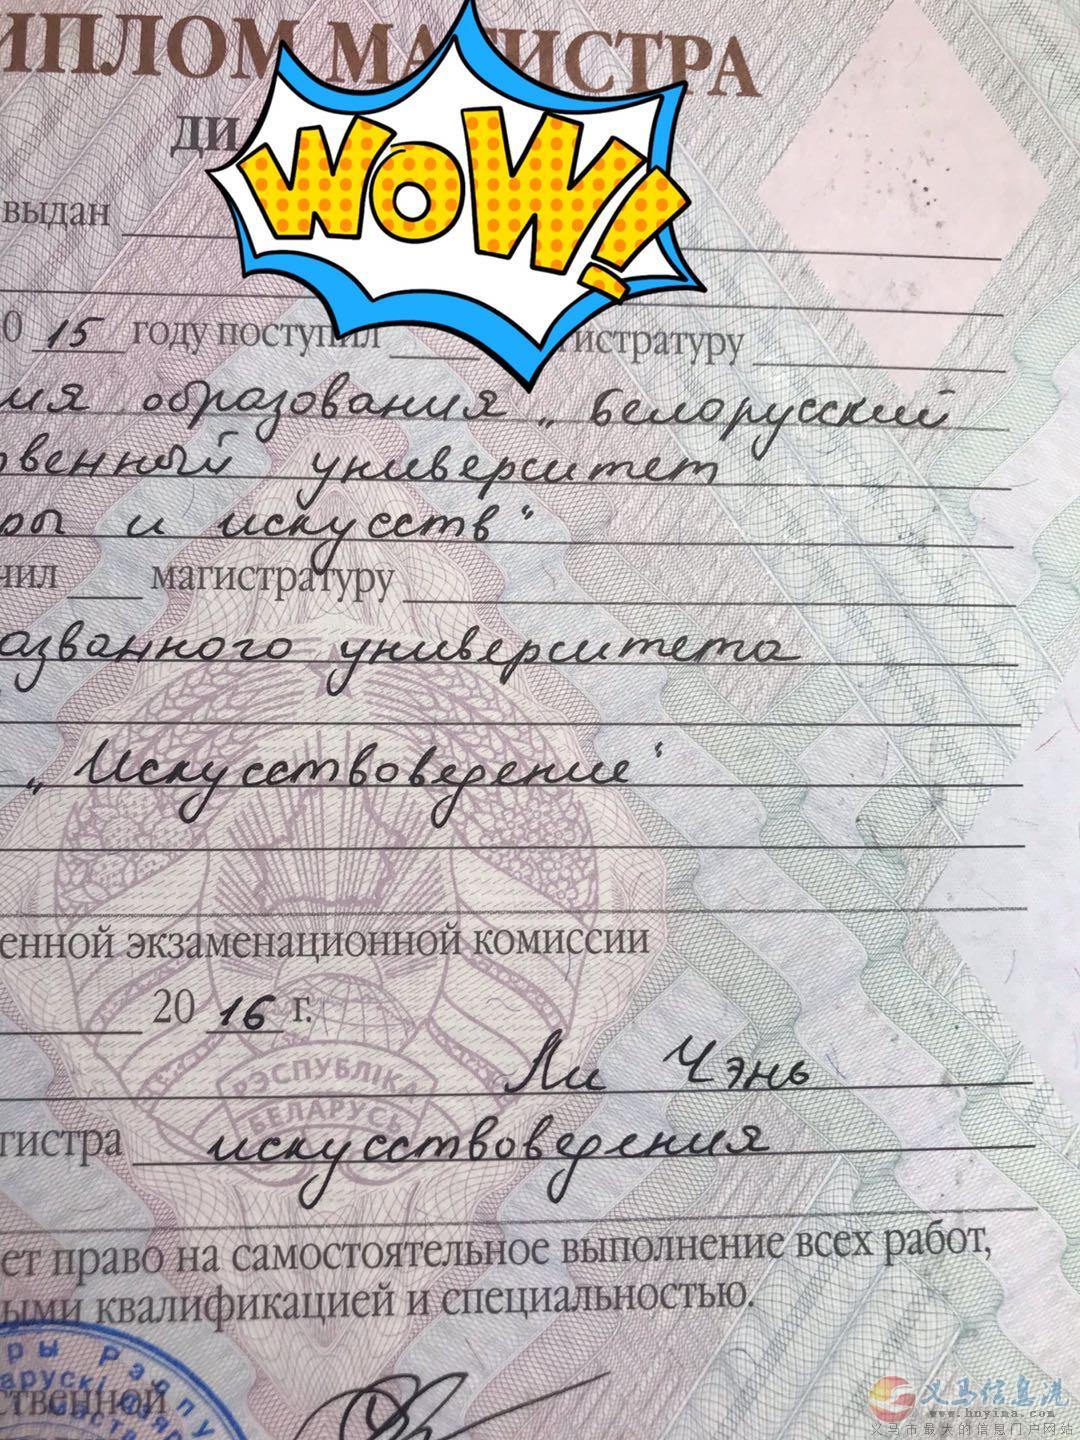 ИПЛОМ МАГИСТРА
ДИ
WOW!
выдан
0 15 году поступил истратуру
ия образования „Белорусский
венный университет
ры и искусств“
чил магистратуру
азванного университета
„Искусствоведение“
енной экзаменационной комиссии
20 16 г.
Ли Чэнь
РЭСПУБЛІКА
БЕЛАРУСЬ
гистра искусствоведения
ет право на самостоятельное выполнение всех работ,
ыми квалификацией и специальностью.
ры Рэспу
ларускі дзяр
ственной
义马信息港
www.hnyima.com
义马市最大的信息门户网站